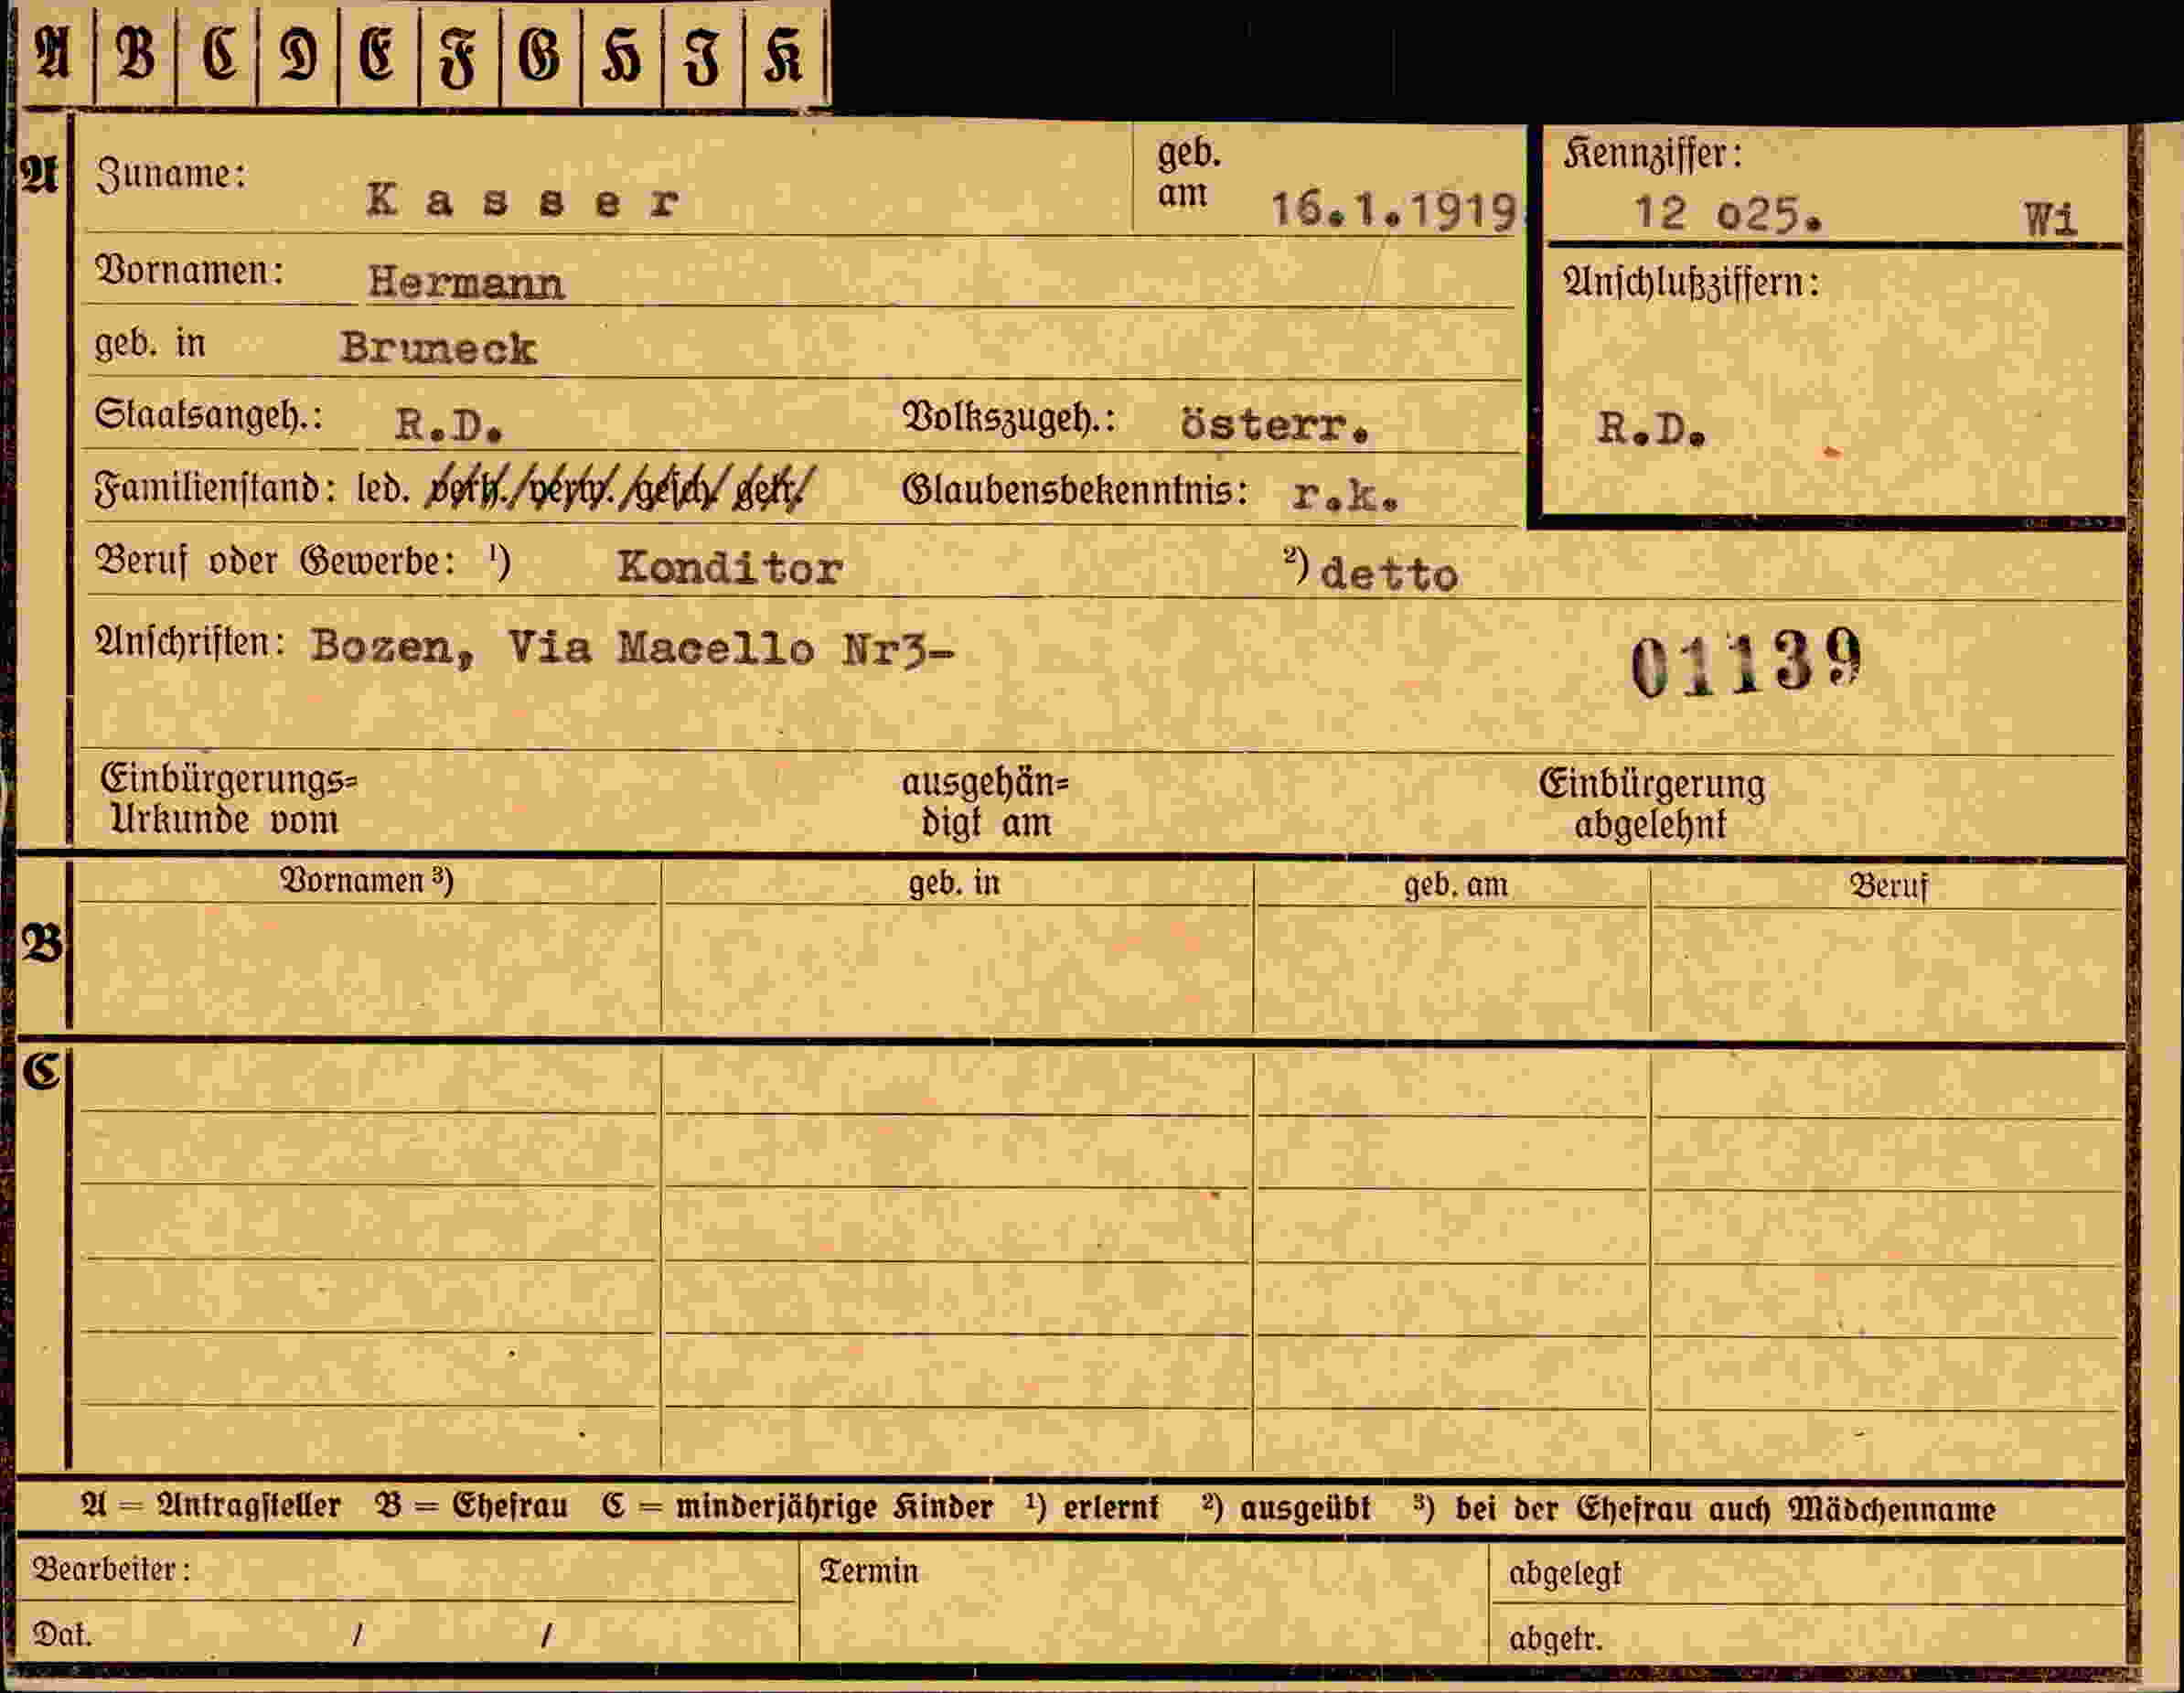 A B C D E F G H I K
A Zuname: Kasser geb. am 16.1.1919 Kennziffer: 12 025. Wi
Vornamen: Hermann Anschlußziffern:
geb. in Bruneck
Staatsangeh.: R.D. Volkszugeh.: österr. R.D.
Familienstand: led. verh./verw./gesch/ getr. Glaubensbekenntnis: r.k.
Beruf oder Gewerbe: ¹) Konditor ²) detto
Anschriften: Bozen, Via Macello Nr3-
01139
Einbürgerungs= ausgehän= Einbürgerung
Urkunde vom digt am abgelehnt
B Vornamen ³) geb. in geb. am Beruf
C
A = Antragsteller B = Ehefrau C = minderjährige Kinder ¹) erlernt ²) ausgeübt ³) bei der Ehefrau auch Mädchenname
Bearbeiter: Termin abgelegt
Dat. / / abgetr.